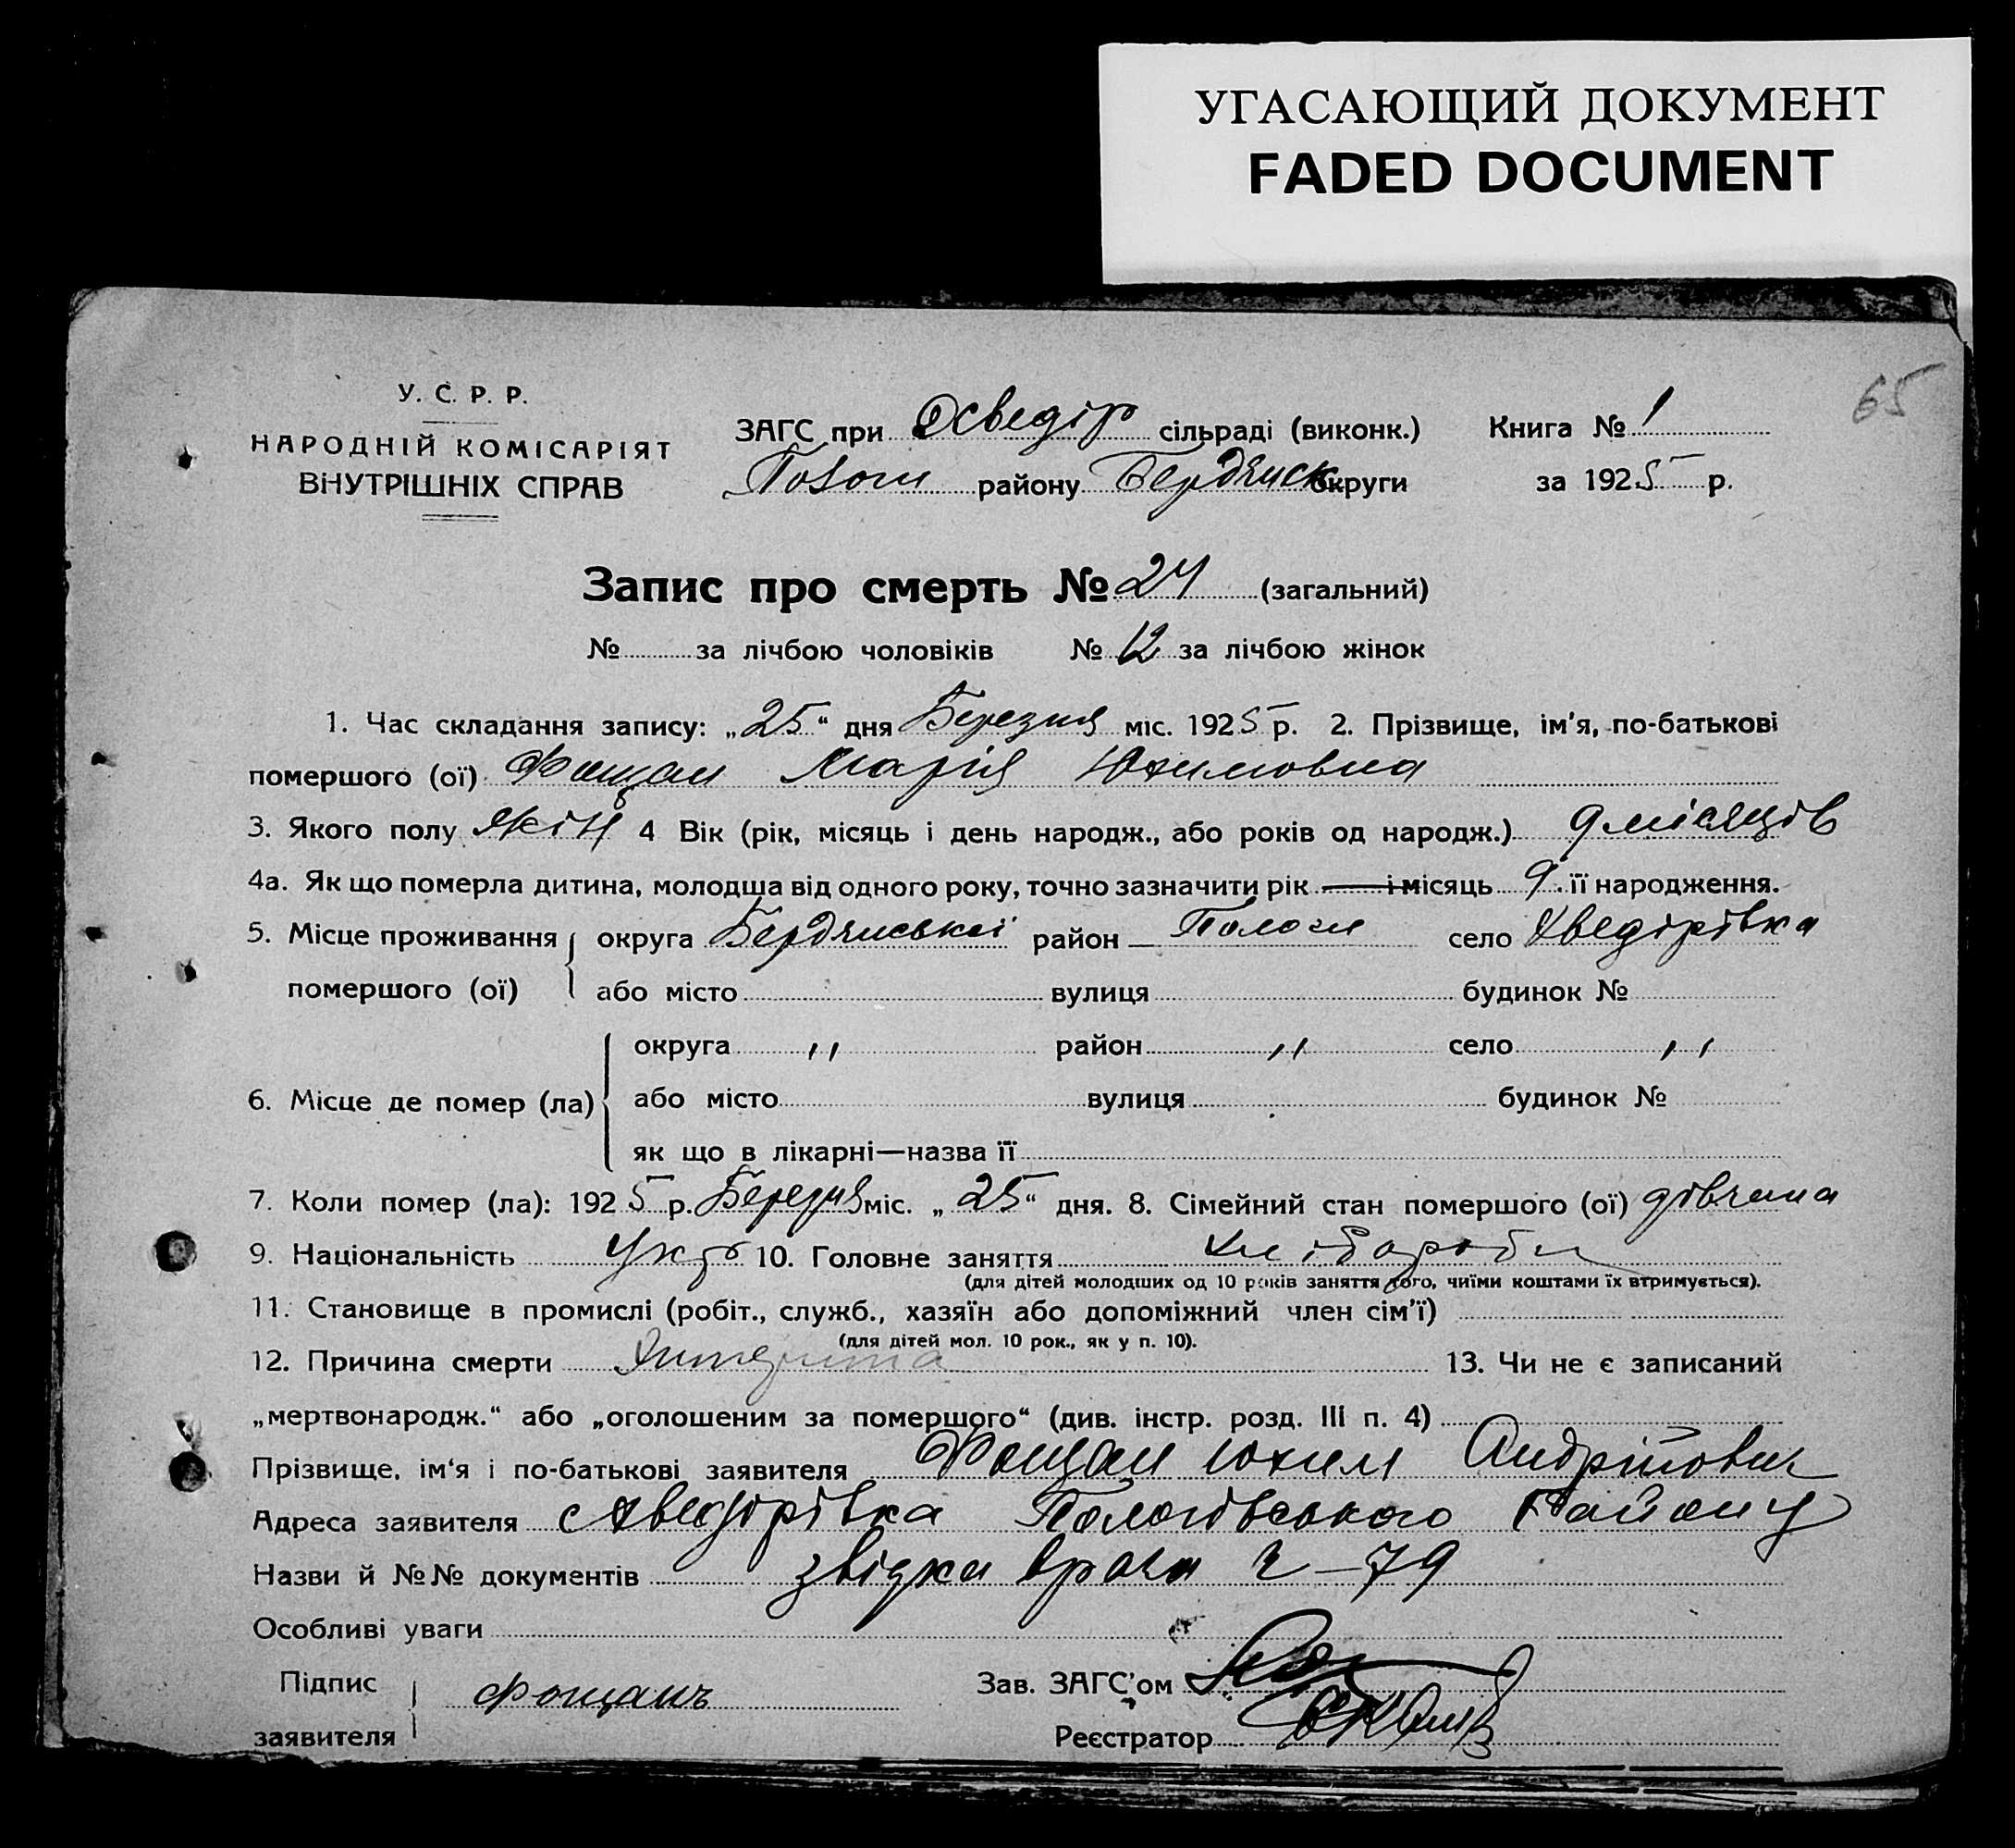 УГАСАЮЩИЙ ДОКУМЕНТ
FADED DOCUMENT
65
У. С. Р. Р.
НАРОДНІЙ КОМІСАРІЯТ
ВНУТРІШНІХ СПРАВ
ЗАГС при Хведір сільраді (виконк.) Книга № 1
району Бердянск округи за 1925 р.
Запис про смерть № 24 (загальний)
№ за лічбою чоловіків № 12 за лічбою жінок
1. Час складання запису: „25“ дня Березня міс. 1925 р. 2. Прізвище, ім'я, по-батькові
помершого (ої) Фощан Марія Юхимовна
3. Якого полу жін 4 Вік (рік, місяць і день народж., або років од народж.) 9 місяців
4а. Як що померла дитина, молодша від одного року, точно зазначити рік і місяць 9 її народження.
5. Місце проживання помершого (ої) округа Бердянської район Пологи село Хведірівка
або місто вулиця будинок №
6. Місце де помер (ла) округа " район " село "
або місто вулиця будинок №
як що в лікарні—назва її
7. Коли помер (ла): 1925 р. Березня міс. „25“ дня. 8. Сімейний стан помершого (ої) дівчина
9. Національність Укр 10. Головне заняття хлібороби
(для дітей молодших од 10 років заняття того, чиїми коштами їх втримується).
11. Становище в промислі (робіт., служб., хазяїн або допоміжний член сім'ї)
(для дітей мол. 10 рок., як у п. 10).
12. Причина смерти 13. Чи не є записаний
„мертвонародж.“ або „оголошеним за помершого“ (див. інстр. розд. III п. 4)
Прізвище, ім'я і по-батькові заявителя Фощан Юхим Андрійович
Адреса заявителя Хведірівка Пологівського Району
Назви й №№ документів звідка врача ч—79
Особливі уваги
Підпис заявителя Фощанъ
Зав. ЗАГС'ом
Реєстратор